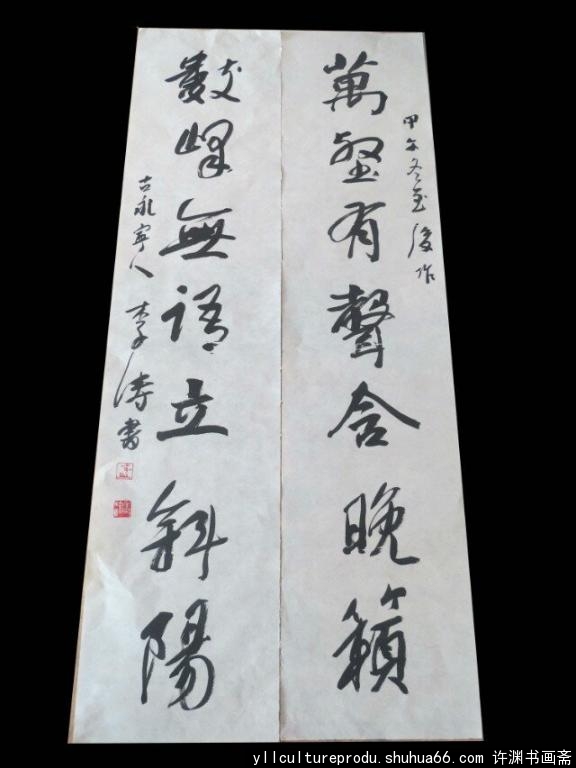 甲午冬至後作
萬壑有聲含晚籟
數峰無語立斜陽
古永寧人 李濤書
yllcultureprodu.shuhua66.com 许渊书画斋